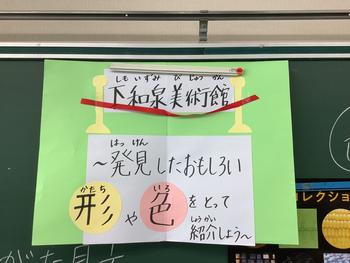 しもいずみ び じゅつかん
下和泉美術館
はっ けん
～発見したおもしろい
かたち いろ
形や色をとって
しょうかい
紹介しよう～
レクショ